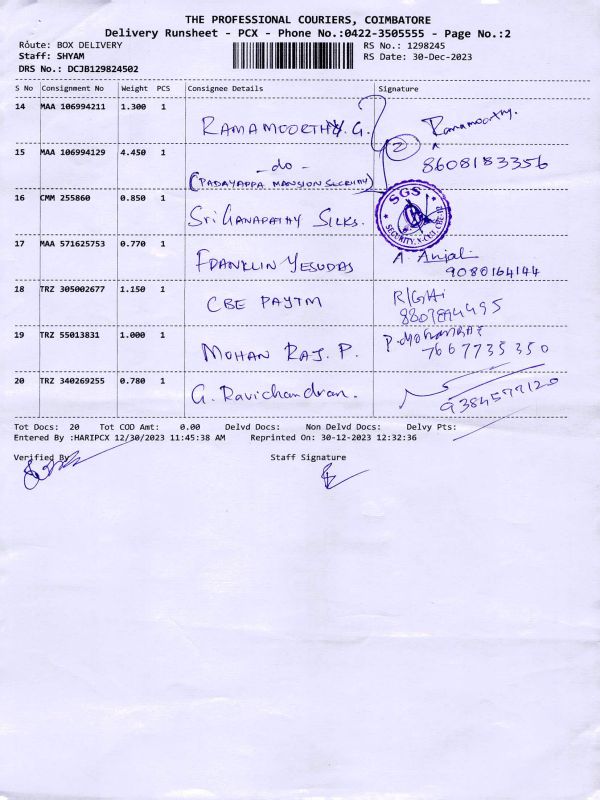 THE PROFESSIONAL COURIERS, COIMBATORE
Delivery Runsheet - PCX - Phone No.:0422-3505555 - Page No.:2
Route: BOX DELIVERY RS No.: 1298245
Staff: SHYAM RS Date: 30-Dec-2023
DRS No.: DCJB129824502
S No Consignment No Weight PCS Consignee Details Signature
14 MAA 106994211 1.300 1 RAMAMOORTHY. G. Ramamoorthy.
15 MAA 106994129 4.450 1 - do - 2 8608183356
(PADAYAPPA MANSION SECURITY)
16 CMM 255860 0.850 1 Sri GANAPATHY SILKS. SGS SECURITY
17 MAA 571625753 0.770 1 FRANKLIN YESUDAS A. Anjali
9080164144
18 TRZ 305002677 1.150 1 CBE PAYTM
19 TRZ 55013831 1.000 1 MOHAN RAJ. P. 7667735350
20 TRZ 340269255 0.780 1 G. Ravichandran. 9384577120
Tot Docs: 20 Tot COD Amt: 0.00 Delvd Docs: Non Delvd Docs: Delvy Pts:
Entered By :HARIPCX 12/30/2023 11:45:38 AM Reprinted On: 30-12-2023 12:32:36
Verified By Staff Signature